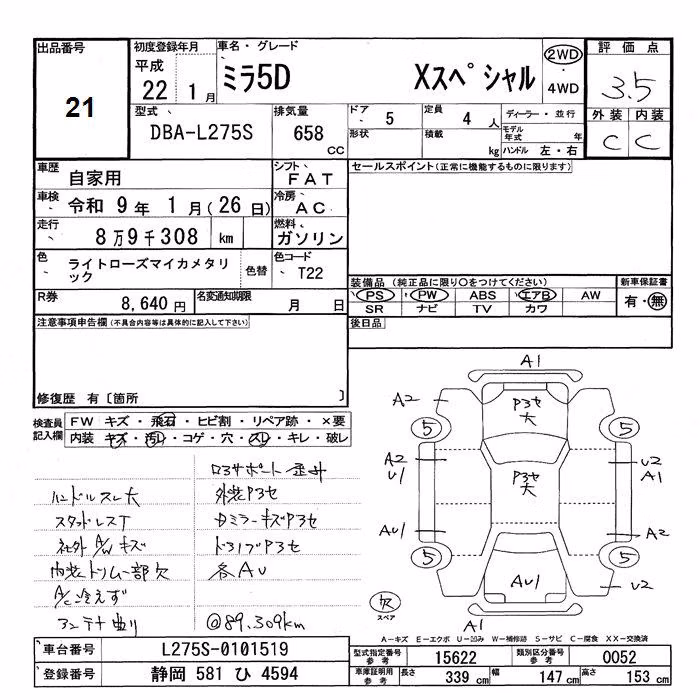 出品番号
21
初度登録年月
平成
22 1月
車名・グレード
ミラ5D Xスペシャル
2WD
・
4WD
評価点
3.5
外装 内装
C C
型式
DBA-L275S
排気量
658
cc
ドア
5
形状
定員
4 人
積載
kg
ディーラー・並行
モデル
年式 年
ハンドル 左・右
車歴
自家用
シフト
FAT
車検
令和 9年 1月(26日)
冷房
AC
走行
8万9千308 km
燃料
ガソリン
色
ライトローズマイカメタリ
ック
色替
色コード
T22
R券
8,640 円
名変通知期限
月 日
セールスポイント(正常に機能するものに限ります)
装備品(純正品に限り〇をつけてください)
PS PW ABS エアB AW
SR ナビ TV カワ
新車保証書
有・無
後日品
注意事項申告欄(不具合内容等は具体的に記入して下さい)
修復歴 有〔箇所 〕
検査員
記入欄
FW キズ・飛石・ヒビ割・リペア跡・×要
内装 キズ・汚レ・コゲ・穴・スレ・キレ・破レ
ロアサポート歪み
ハンドルスレ大
外装Pヨセ
スタッドレスT
カミラーキズPヨセ
社外A/Wキズ
ドアノブPヨセ
内装トリム一部欠
各AU
A/C冷えず
アンテナ曲り
@89.309km
A1
A2
Pヨセ
大
5 5
A2
U1
Pヨセ
大
U2
A1
AU1
A2
5 5
AU1
U2
欠
スペア
A1
A-キズ E-エクボ U-凹み W-補修跡 S-サビ C-腐食 XX-交換済
車台番号
L275S-0101519
登録番号
静岡 581 ひ 4594
型式指定番号
参考
15622
類別区分番号
参考
0052
車庫証明用
参考
長さ
339 cm
幅
147 cm
高さ
153 cm